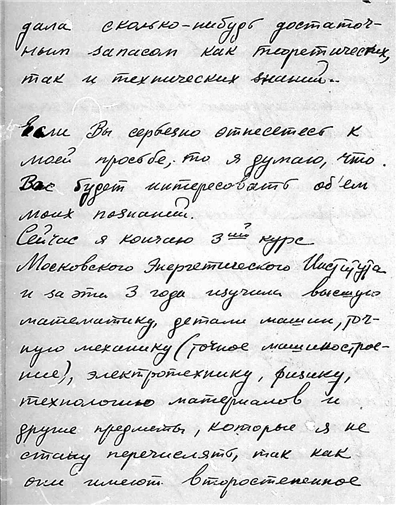 дала сколько-нибудь достаточ-
ным запасом как теоретических,
так и технических знаний.
Если Вы серьезно отнесетесь к
моей просьбе, то я думаю, что
Вас будет интересовать об'ем
моих познаний.
Сейчас я кончаю 3ий курс
Московского Энергетического Института
и за эти 3 года изучила высшую
математику, детали машин, точ-
ную механику (точное машинострое-
ние), электротехнику, физику,
технологию материалов и
другие предметы, которые я не
стану перечислять, так как
они имеют второстепенное